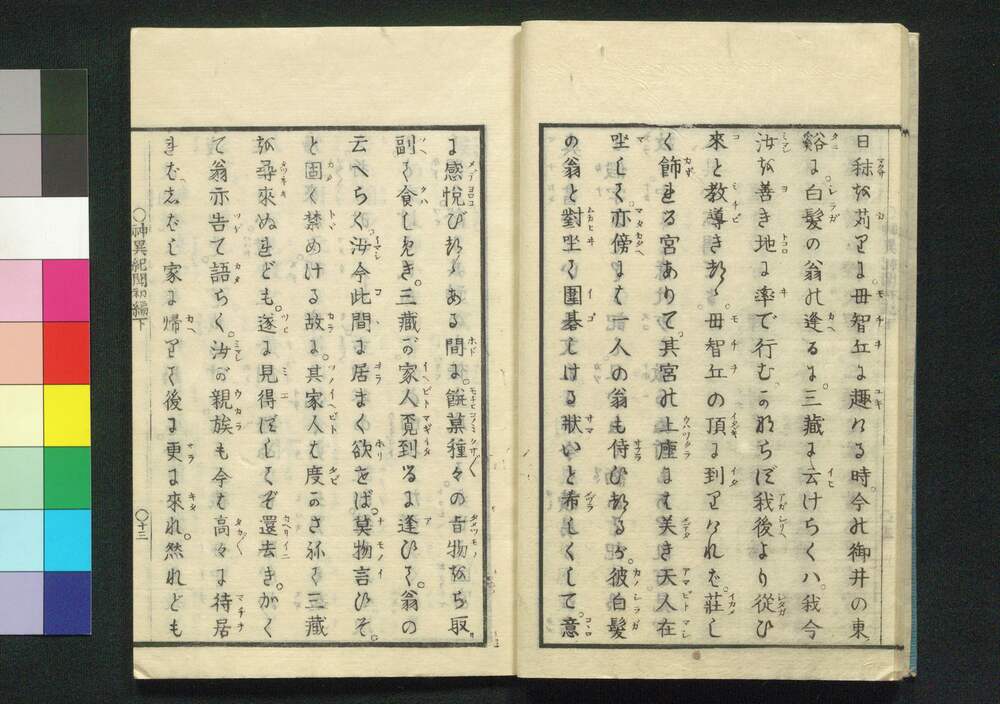 日秣を苅りに毋智丘に趣ける時。今の御井の東
谿に。白髮の翁の逢へるに。三藏に云けらくハ。我今
汝を善き地に率て行むかならず我後より從ひ
來と教導きけり。毋智丘の頂に到りければ。莊し
く飾れる宮ありて。其宮の上座には美き天人在
坐して。亦傍には一人の翁も侍ひけるが。彼白髮
の翁と對坐て圍碁しける狀いと希しくして。意
に感悦びけりある間に。餅菓種々の甘物をら取
副て食しめき。三藏が家人覓到るに逢ひて。翁の
云へらく。汝今此間に居まく欲せば。莫物言ひそ。
と固く禁めける故に。其家人は度かさねて三藏
を尋來ぬれども。遂に見得ずしてぞ還去き。かく
て翁亦告て語らく。汝が親族も今は高々に待居
ればしばし家に帰りて後に更に來れ。然れども
○神異紀聞初編下
○十三